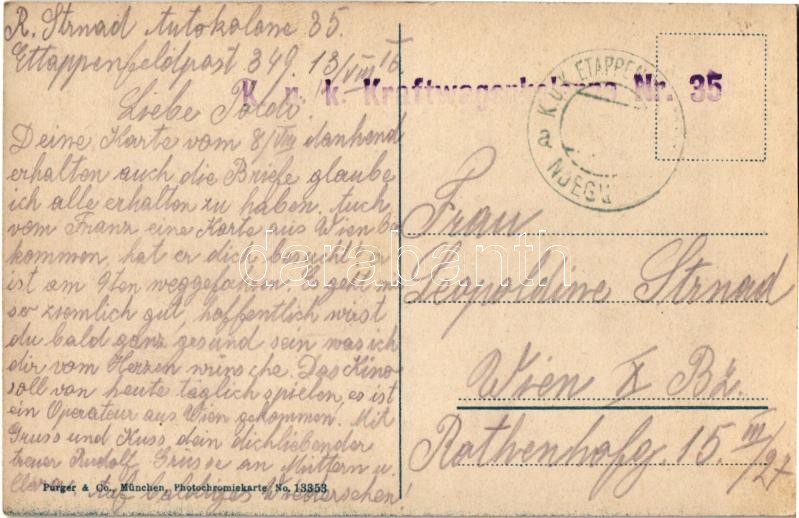 R. Strnad Autokolone 35.
Ettappenfeldpost 349. 13/VIII 16.
K. u. k. Kraftwagenkolonne Nr. 35
K. U. K. ETAPPEN
a
NJEGU
Liebe Poldi!
Deine Karte vom 8/VIII dankend
erhalten auch die Briefe glaube
ich alle erhalten zu haben. Auch
vom Franz eine Karte aus Wien be
kommen, hat er dich besucht er
ist am 9ten weggefahren.
so ziemlich gut hoffentlich wirst
du bald ganz gesund sein was ich
dir vom Herzen wünsche. Das Kino
soll von heute täglich spielen, es ist
ein Operateur aus Wien gekommen. Mit
Gruss und Kuss dein dichliebender
treuer Rudolf. Grüsse an Muttern u.
Auf baldiges Wiedersehen!
Frau
Leopoldine Strnad
Wien X Bz.
Rothenhofg. 15. III/27
Purger & Co., München, Photochromiekarte No. 13353
darabanth